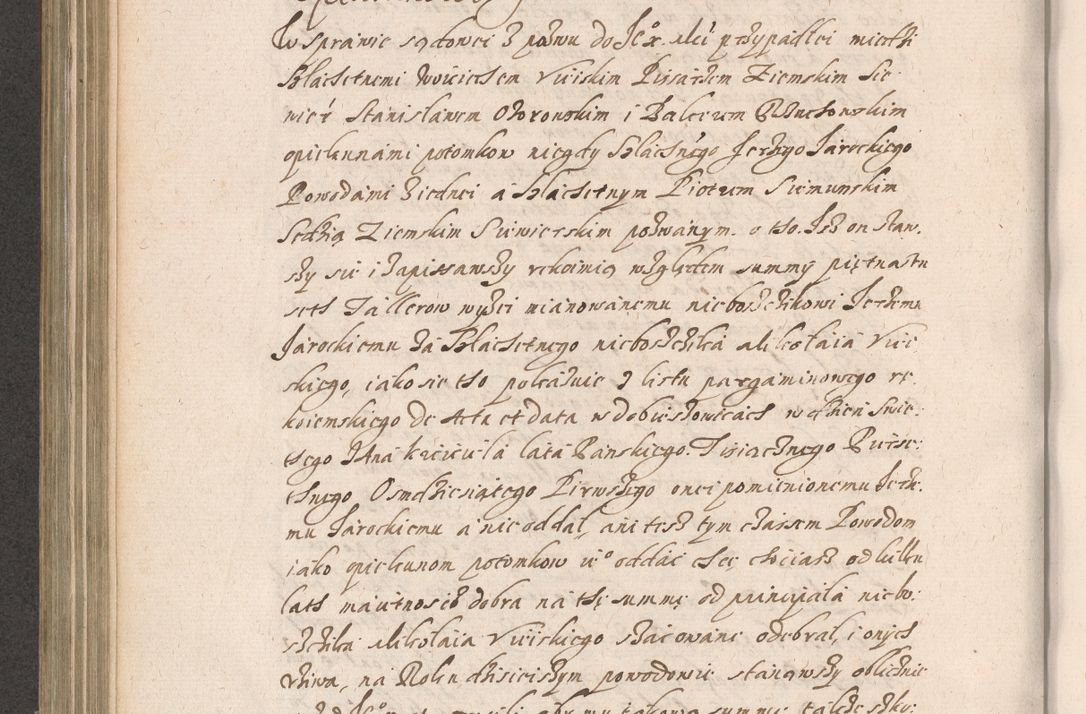 W sprawie sądowei z pozwu do Jeº x. Mci przypadłei miedzi
Szlachetnemi Woiciechem Uieiskim Pisarzem Ziemskim Sie-
wier Stanisławem Ożoronskim i Balcerum Bzuchowskim
opiekunnami potomkow niegdy Szlachetnego Jerzego Jarockiego
Powodami ziednei a Szlachetnym Piotrem Siemunskim
Sedzią Ziemskim Siewierskim pozwanym. o tho. Jsz on staw-
szy sie i zapisawszy rekoimią względem summy piętnastu
seth Tallerow wyżei mianowanemu nieboszczikowi Jerzemu
Jarockiemu za Szlachetnego nieboszczika Mikołaia Uiei-
skiego, iako sie tho pokazuie z listu pargaminowego rę-
koiemskiego de Acta et data w dobieszowicach w dzien Swię-
tego Jana krzciciela lata Panskiego. Tisiącznego Pięcse-
thnego Osmdziesiątego Pirwszego onei pomienionemu Jerze-
mu Jarockiemu a nie oddał, ani tesz tym czasem Powodom
iako opiekunom potomkow ieº oddać chce chociasz od kilku
lath maiętnosci dobra na thę summę od principała niebo-
szczika Mikołaia Uieiskiego szacowane odebrał, i onych
używa, na Roku dzisieiszym powodowie stanąwszy oblicznie